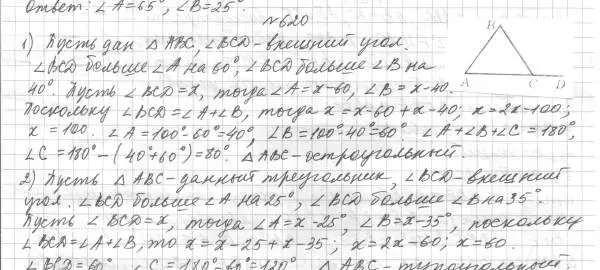 Ответ: ∠A=65°, ∠B=25°.
№620
1) Пусть дан △ABC, ∠BCD - внешний угол.
∠BCD больше ∠A на 60°, ∠BCD больше ∠B на
40°. Пусть ∠BCD = x, тогда ∠A = x-60, ∠B = x-40.
Поскольку ∠BCD = ∠A+∠B, тогда x = x-60+x-40; x = 2x-100;
x = 100. ∠A = 100°-60°=40°, ∠B = 100°-40°=60° ∠A+∠B+∠C = 180°,
∠C = 180° - (40°+60°) = 80°. △ABC - остроугольный.
2) Пусть △ABC - данный треугольник, ∠BCD - внешний
угол. ∠BCD больше ∠A на 25°, ∠BCD больше ∠B на 35°.
Пусть ∠BCD = x, тогда ∠A = x-25°, ∠B = x-35°, поскольку
∠BCD = ∠A+∠B, то x = x-25+x-35; x = 2x-60; x = 60.
∠BCD = 60° ∠C = 180°-60°=120° △ABC - тупоугольный
B
A C D